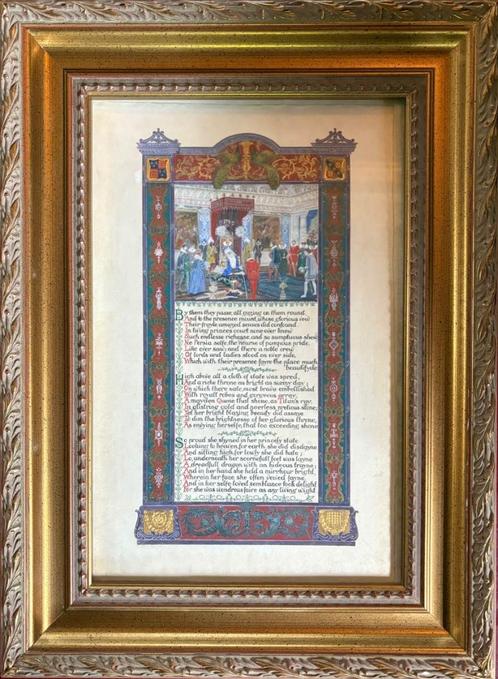 By them they passe, all gazing on them round
And to the presence mount, whose glorious vew
Their frayle amazed senses did confound
In living princes court none ever knew
Such endlesse richesse, and so sumptuous shew
Ne Persia selfe, the nourse of pompous pride
Like ever saw: and there a noble crew
Of lords and ladies stood on ever side,
Which with their presence fayre the place much
beautifyde.
High above all a cloth of state was spred,
And a riche throne as bright as sunny day;
On which there sate, most brave embellished
With royall robes and gorgeous array,
A mayden Queene that shone, as Titan's ray,
In glistring gold and peerless pretious stone;
Yet her bright blazing beauty did assaye
To dim the brightnesse of her glorious throne,
As envying herselfe, that too exceeding shone
So proud she shyned in her princely state
Looking to heaven for earth she did disdayne
And sitting high, for lowly she did hate;
Lo, underneath her scornefull feet was layne
A dreadfull dragon with an hideous trayne;
And in her hand she held a mirrhour bright,
Wherein her face she often vewed fayne
And in her selfe-loved semblance took delight
For she was wondrous faire as any living wight